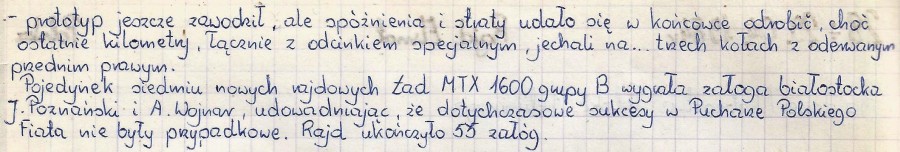 - prototyp jeszcze zawodził, ale spóźnienia i straty udało się w końcówce odrobić, choć
ostatnie kilometry, łącznie z odcinkiem specjalnym, jechali na... trzech kołach z oderwanym
przednim prawym.
Pojedynek siedmiu nowych rajdowych Ład MTX 1600 grupy B wygrała załoga białostocka
J. Poznański i A. Wojnar, udowadniając, że dotychczasowe sukcesy w Pucharze Polskiego
Fiata nie były przypadkowe. Rajd ukończyło 55 załóg.